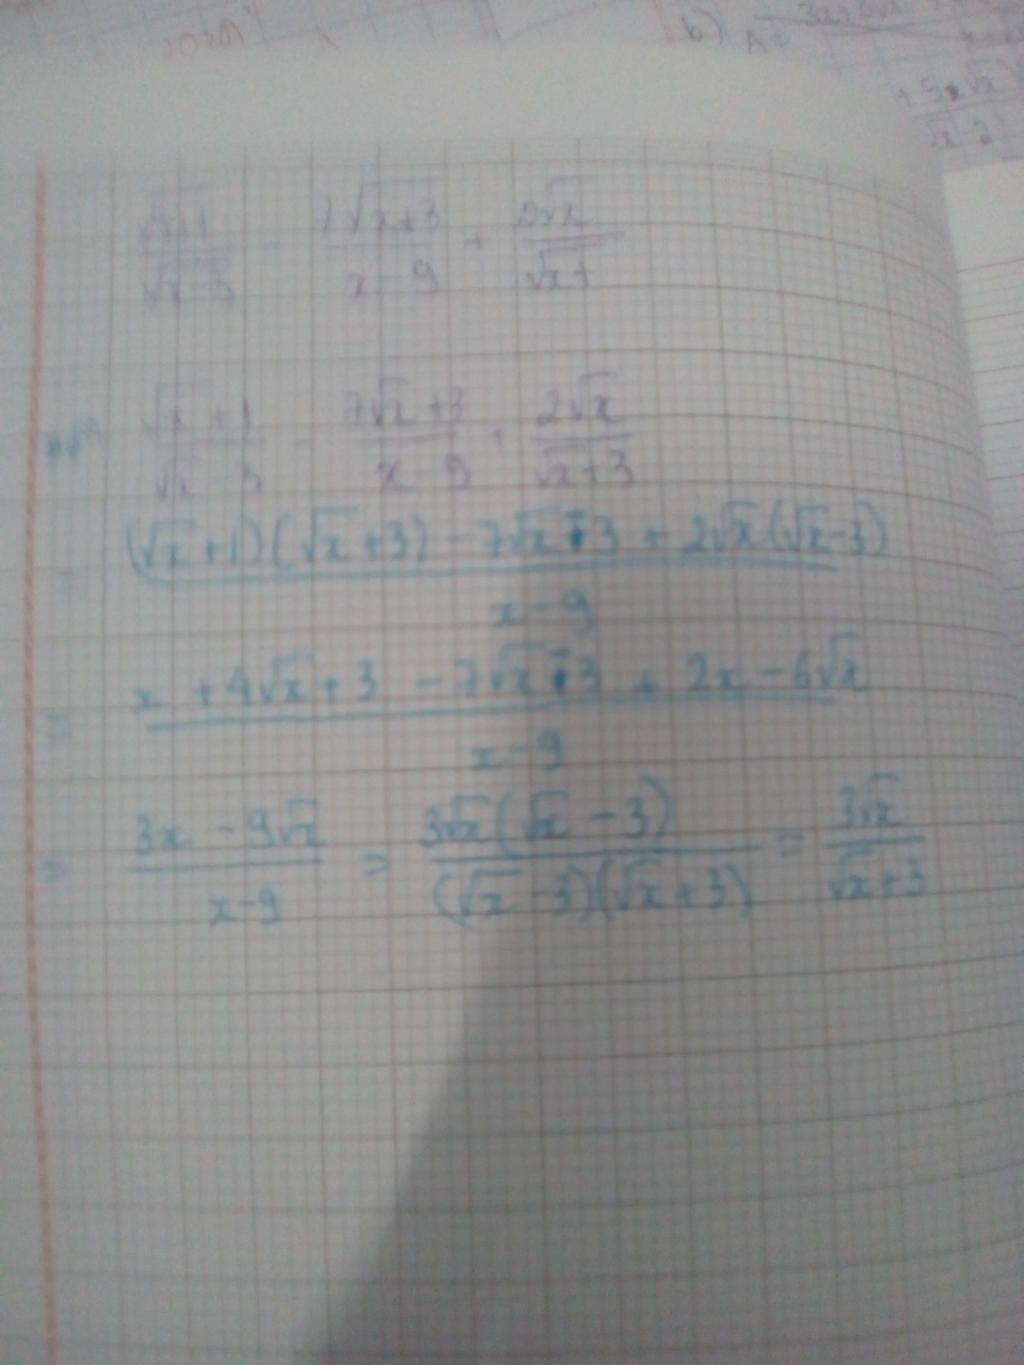 b) A =
+ 5x√x
√x-2
√x+1/√x-3 - 7√x+3/x-9 + 2√x/√x+
√x+1/√x-3 - 7√x+3/x-9 + 2√x/√x+3
= (√x+1)(√x+3) - 7√x-3 + 2√x(√x-3)/x-9
= x+4√x+3 - 7√x-3 + 2x-6√x/x-9
= 3x-9√x/x-9 = 3√x(√x-3)/(√x-3)(√x+3) = 3√x/√x+3